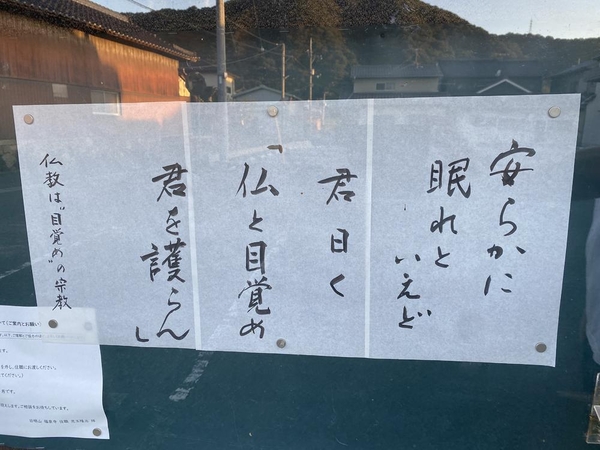 安らかに
眠れと
いえど
君曰く
「仏と目覚め
君を護らん」
仏教は"目覚め"の宗教